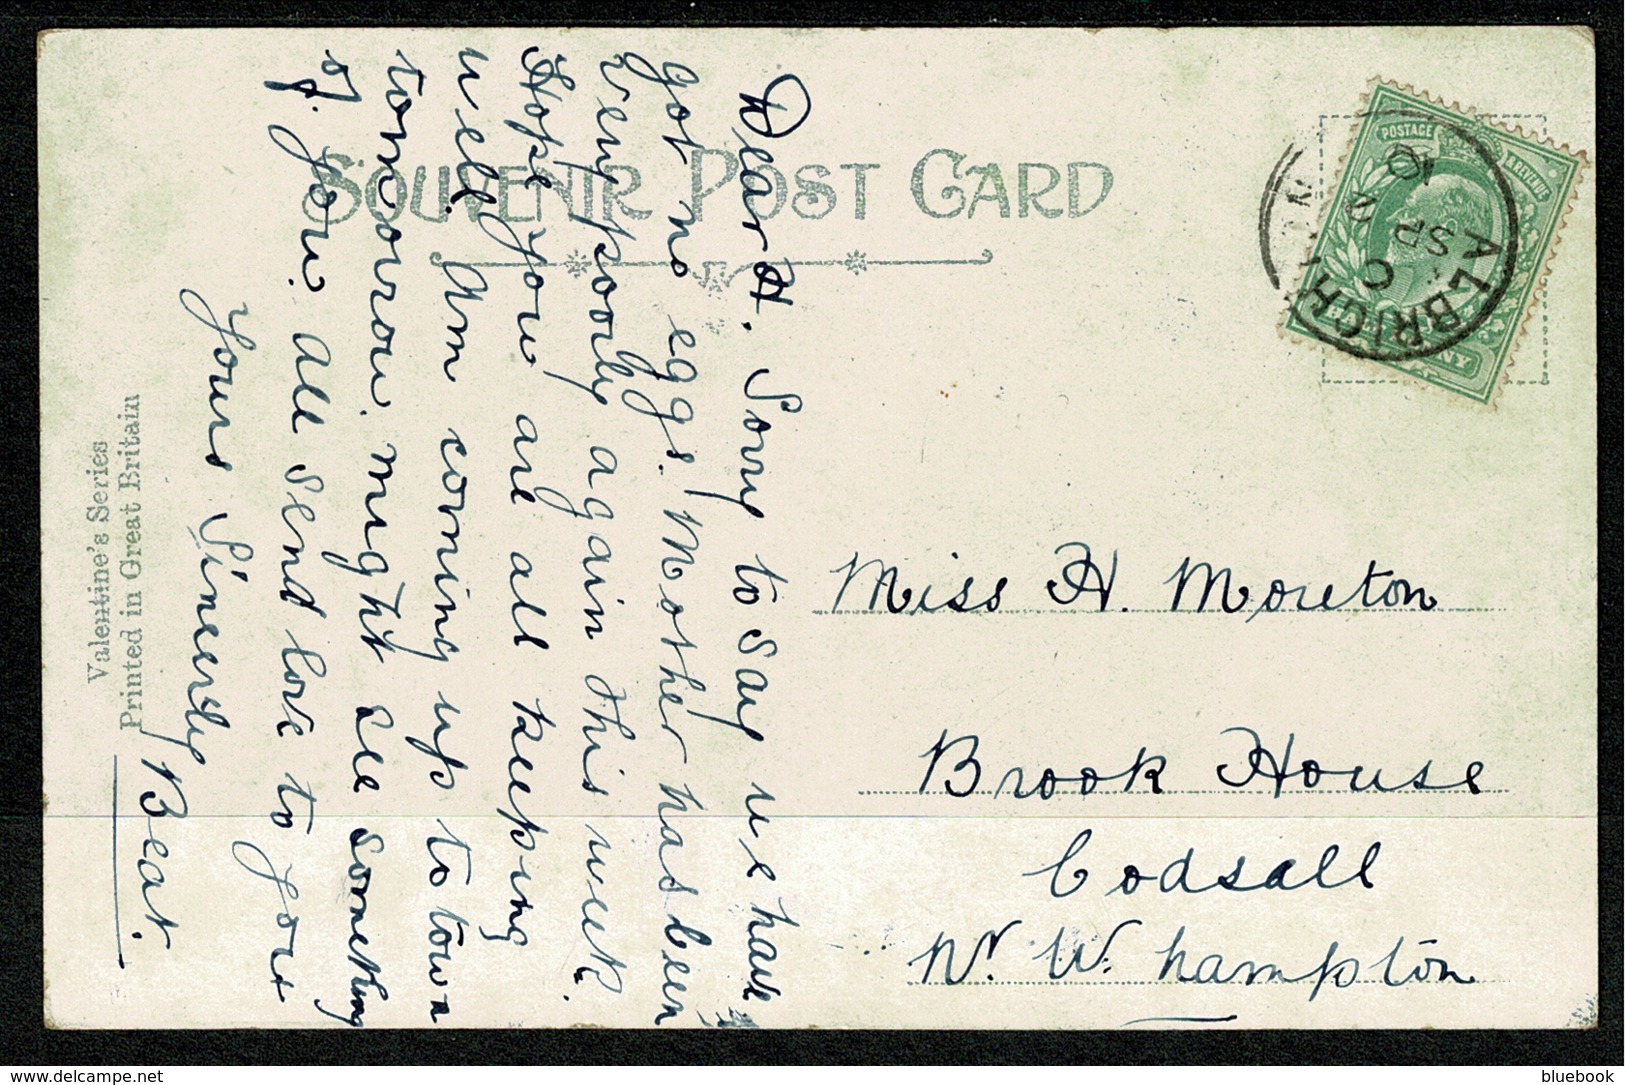 SOUVENIR POST CARD
Valentine's Series
Printed in Great Britain
Dear H. Sorry to say we have
got no eggs. Mother has been
very poorly again this week.
Hope you are all keeping
well. Am coming up to town
tomorrow. might see something
of you. All send love to you
Yours Sincerely
Beat.
POSTAGE REVENUE
ALBRIGH
C
SP
10
Miss H. Moreton
Brook House
Codsall
Nr. W.hampton
bluebook